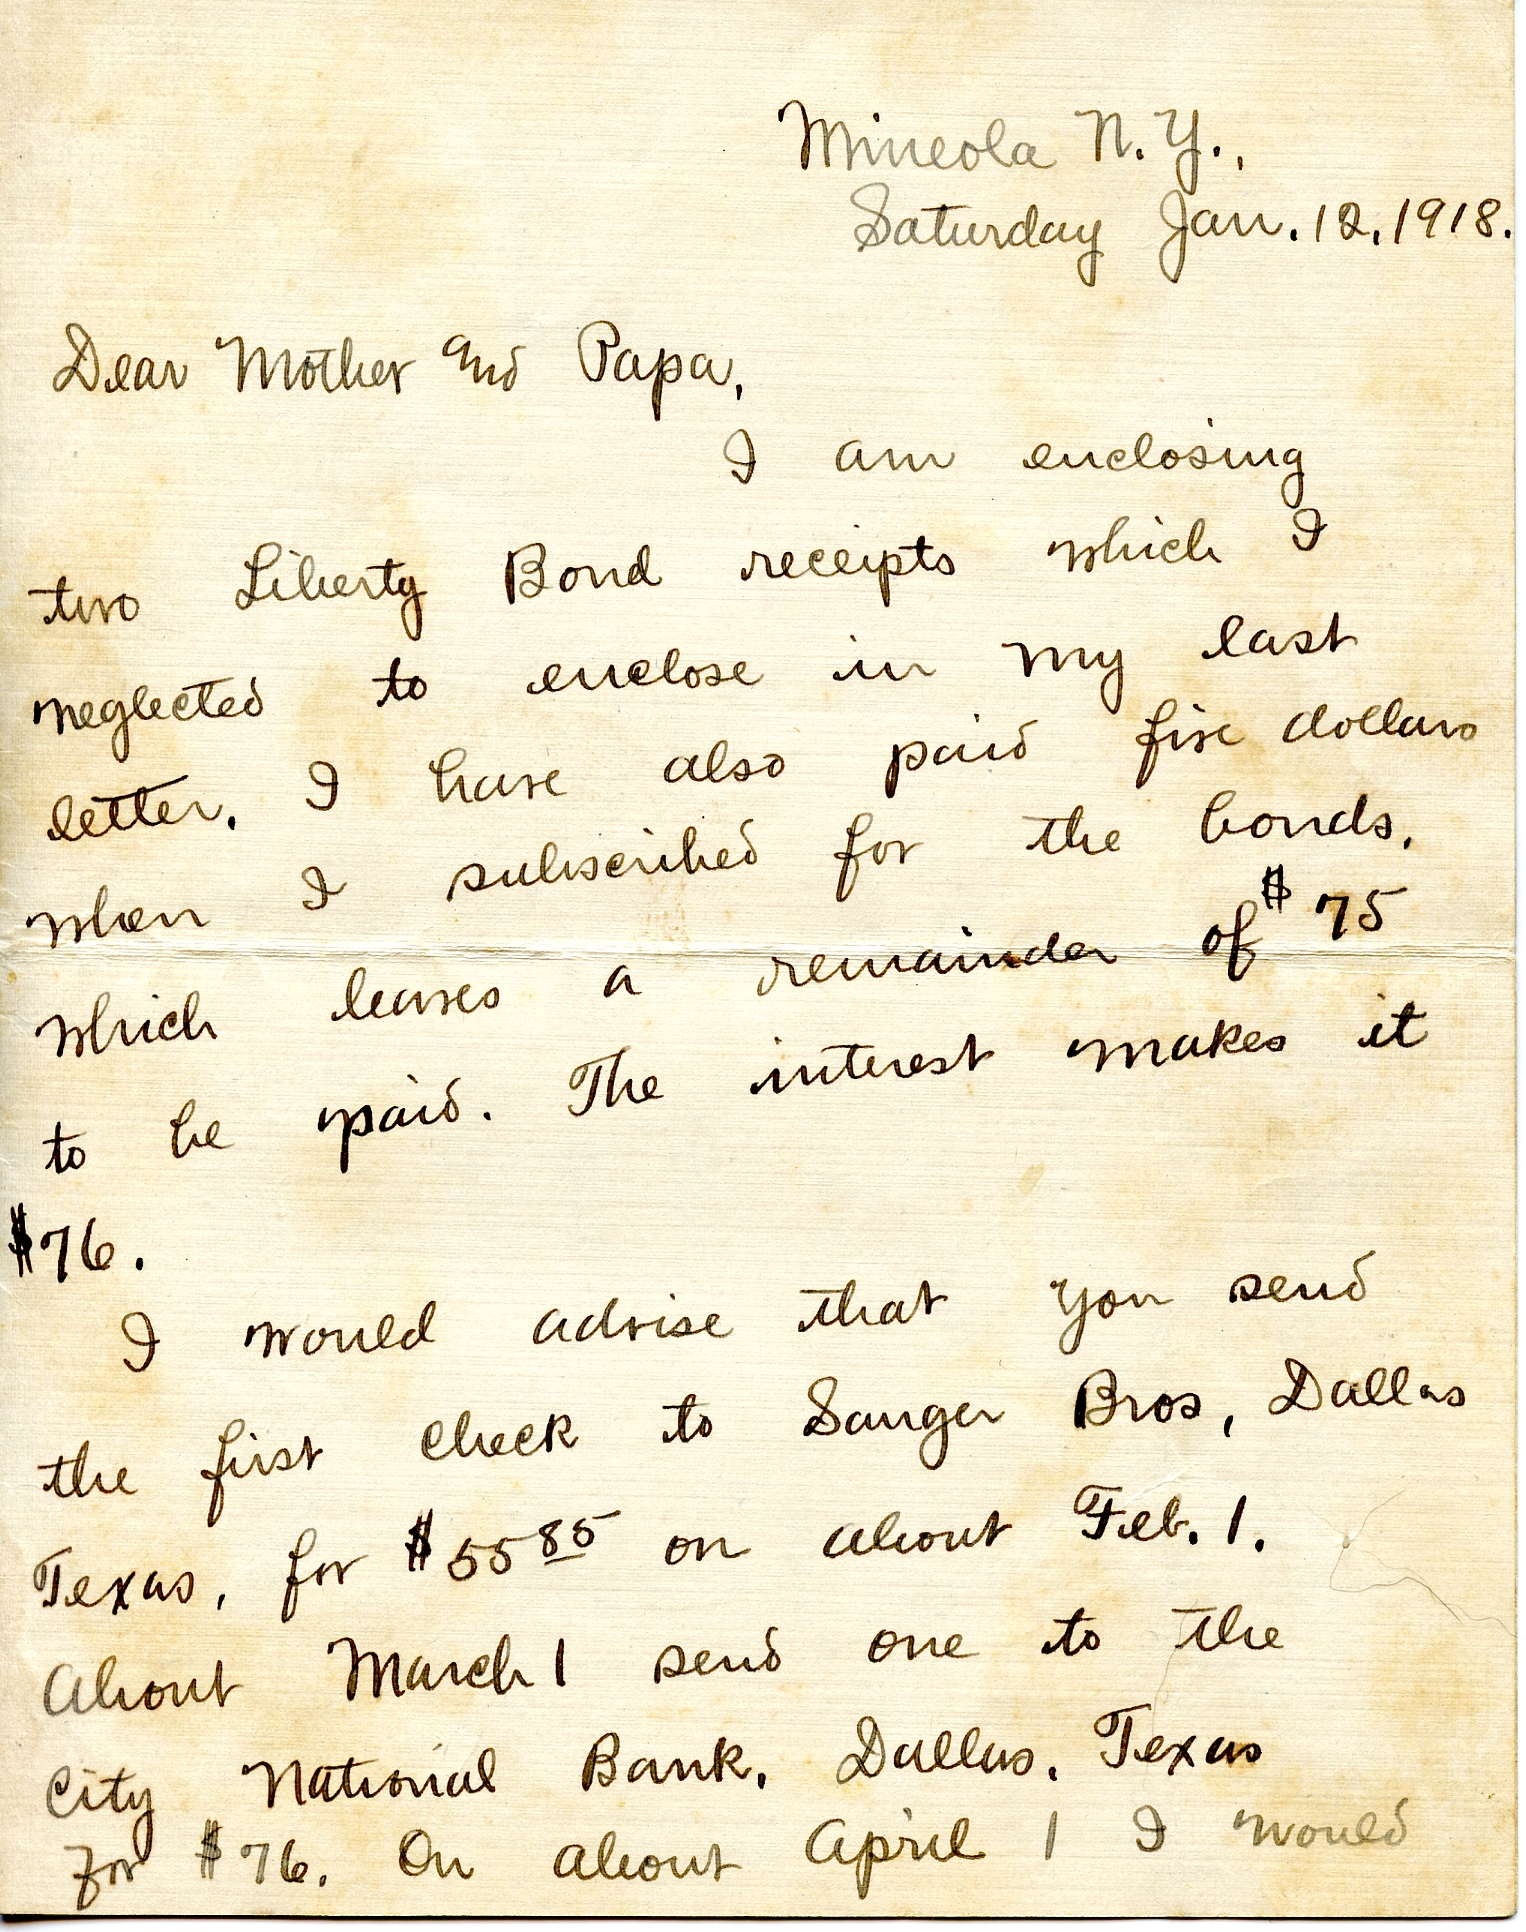 Mineola N.Y.,
Saturday Jan. 12, 1918.
Dear Mother and Papa,
I am enclosing
two Liberty Bond receipts which I
neglected to enclose in my last
letter. I have also paid five dollars
when I subscribed for the bonds.
which leaves a remainder of $75
to be paid. The interest makes it
$76.
I would advise that you send
the first check to Sanger Bros, Dallas
Texas, for $55 85 on about Feb. 1.
About March 1 send one to the
City National Bank, Dallas, Texas
for $76. On about April 1 I would